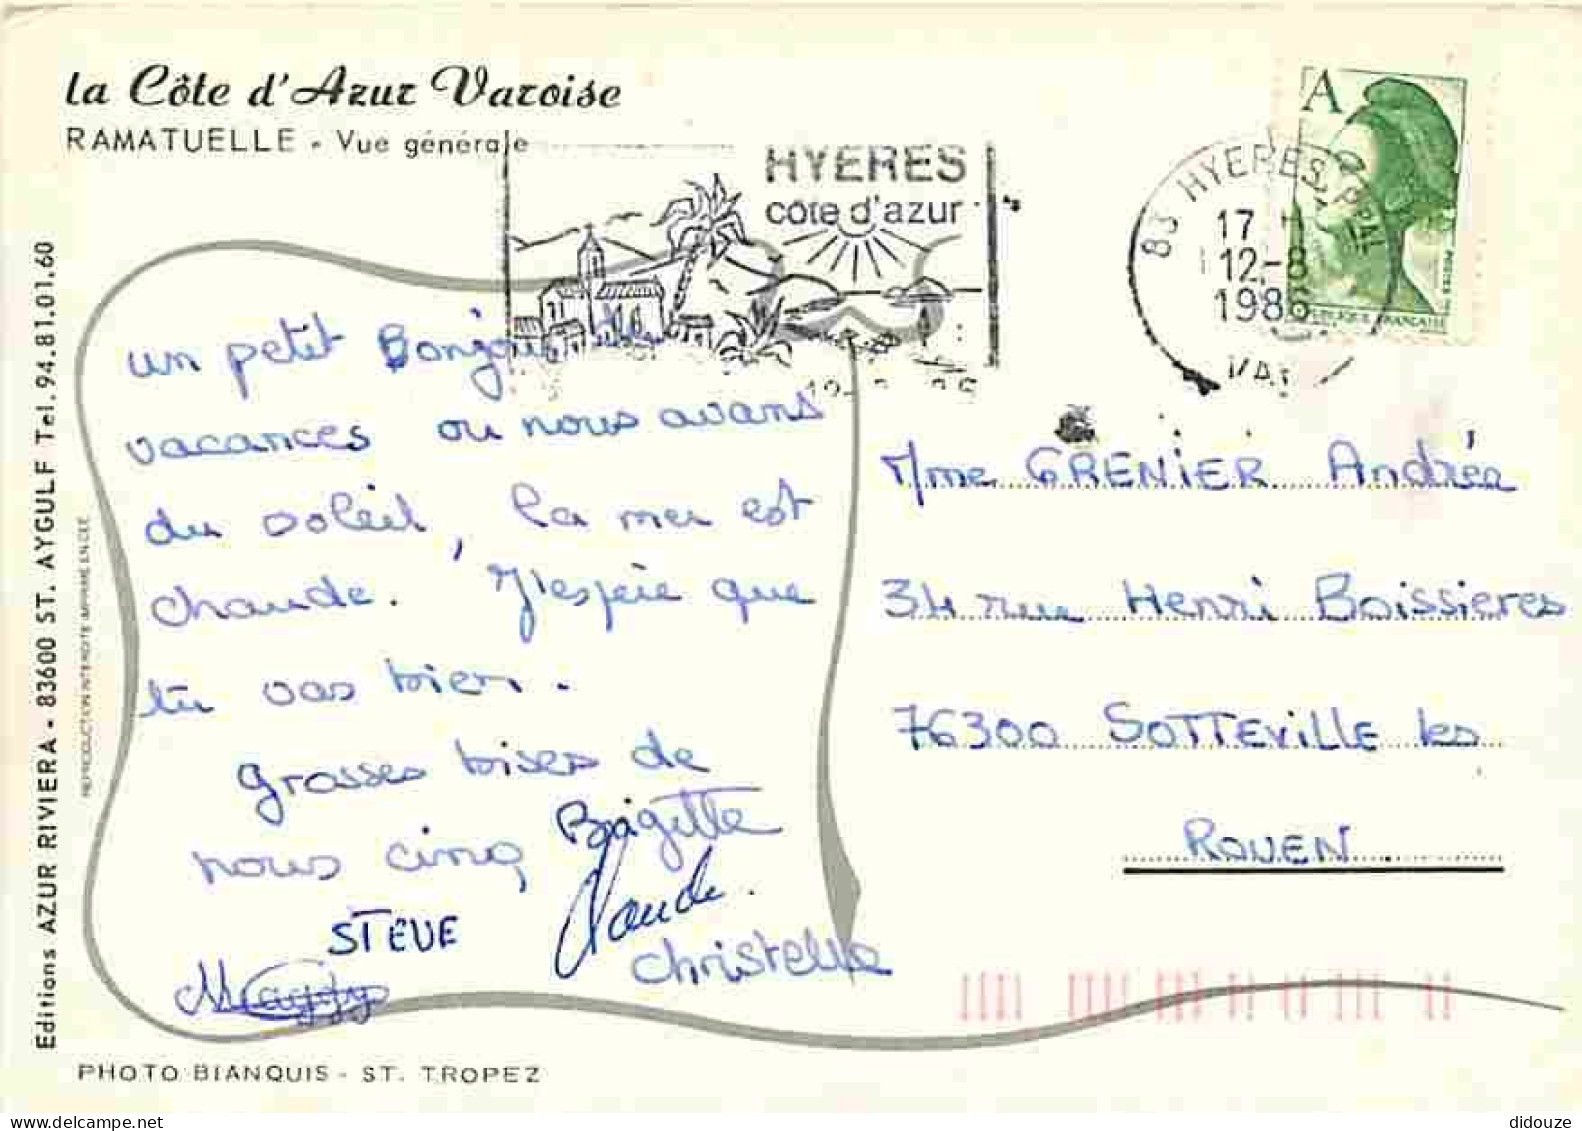 la Côte d'Azur Varoise
RAMATUELLE - Vue générale
HYERES
côte d'azur
83 HYERES PPAL
17 H
12-8
1986
VAR
A
REPUBLIQUE FRANCAISE
un petit Bonjour de
vacances ou nous avons
du soleil, la mer est
chaude. J'espère que
tu vas bien.
grosses bises de
nous cinq
Brigitte
Claude.
STEVE
Christelle
Maggy
Mme GRENIER Andréa
34 rue Henri Boissieres
76300 SOTTEVILLE les
ROUEN
Editions AZUR RIVIERA - 83600 ST. AYGULF Tel. 94.81.01.60
REPRODUCTION INTERDITE IMPRIME EN CEE
PHOTO BIANQUIS - ST. TROPEZ
didouze